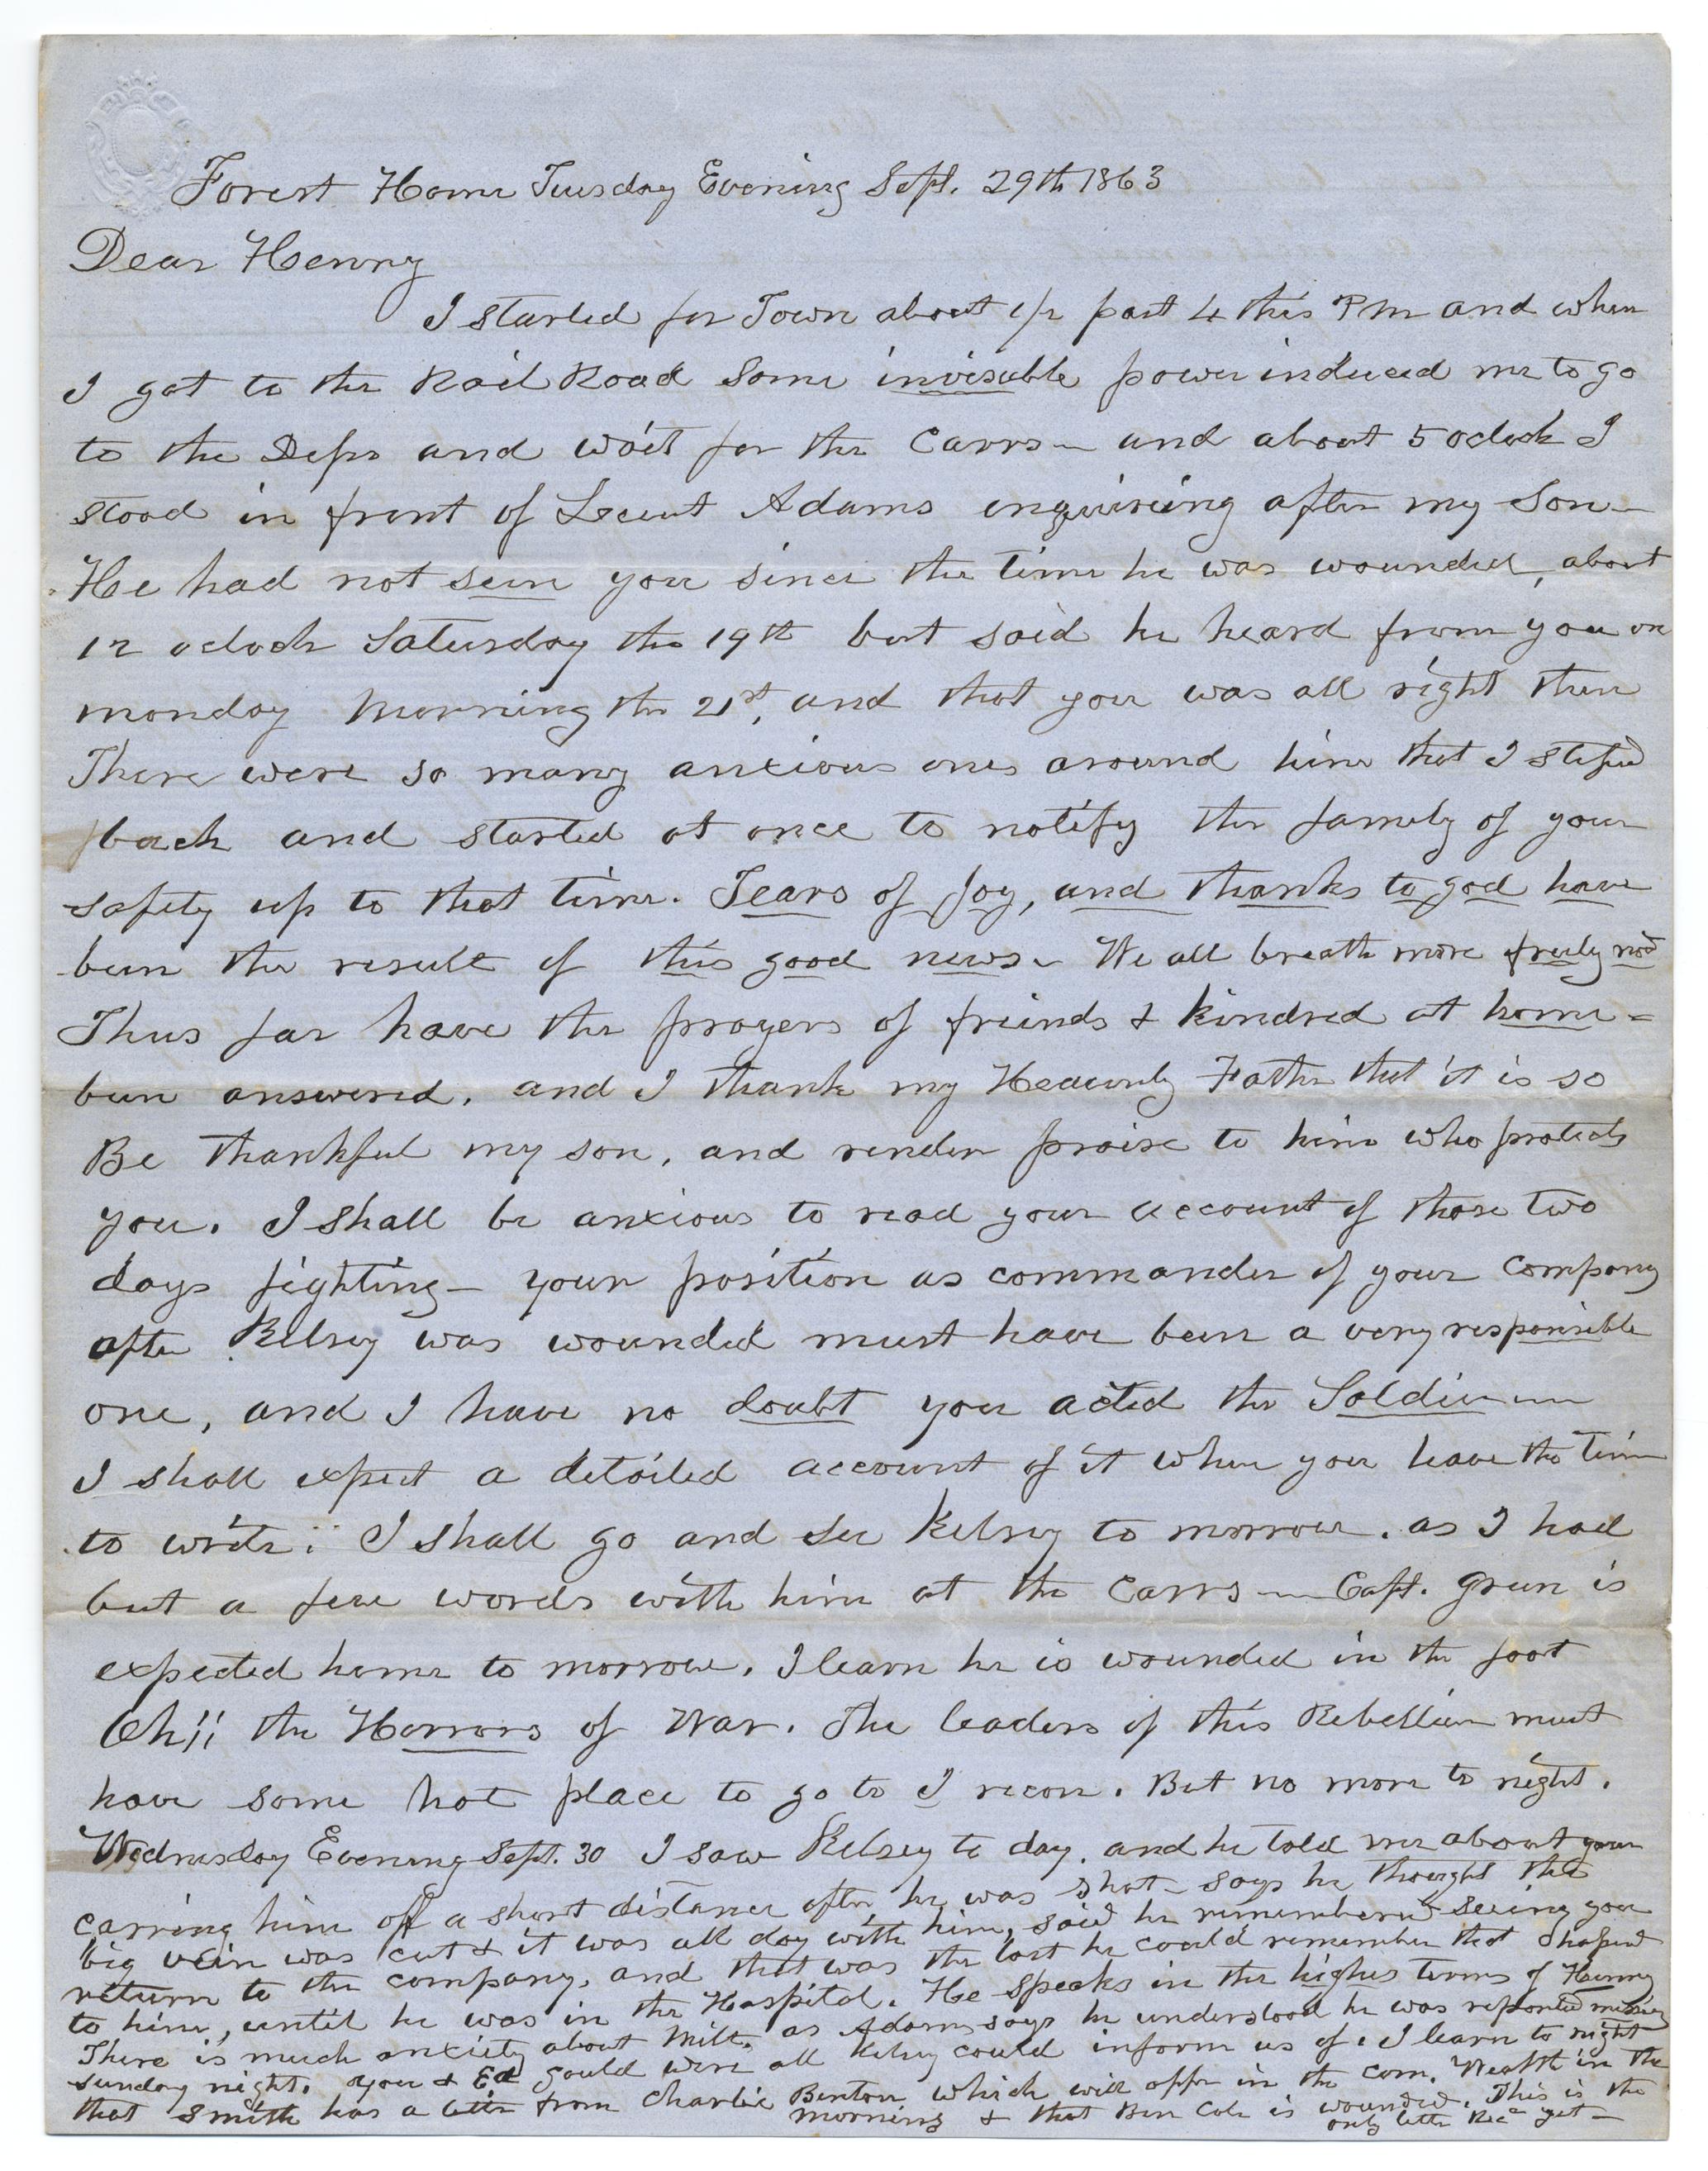 Forest Home Tuesday Evening Sept. 29th 1863
Dear Henry
I started for Town about 1/2 past 4 this PM and when
I got to the Rail Road some invisable power induced me to go
to the Depo and wait for the Carrs - and about 5 oclock I
stood in front of Leeut Adams enquireing after my Son -
He had not seen you since the time he was wounded, about
12 oclock Saturday the 19th but said he heard from you on
monday Morning the 21st, and that you was all right then
There were so many anxious ones around him that I steped
back and started at once to notify the family of your
safety up to that time. Tears of Joy, and thanks to god have
been the result of this good news - We all breath more freely now
Thus far have the prayers of friends & kindred at home =
been answered, and I thank my Heavenly Father that it is so
Be thankful my son, and render praise to him who protects
you. I shall be anxious to read your account of those two
days fighting - your position as commander of your Company
after Kelsey was wounded must have been a very responsible
one, and I have no doubt you acted the Soldier
I shall expect a detailed account of it when you have the time
to write. I shall go and see Kelsey to morrow. as I had
but a few words with him at the Carrs - Capt. Green is
expected home to morrow. I learn he is wounded in the foot
Oh!! the Horrors of War. The leaders of this Rebellion must
have some hot place to go to I recon. But no more to night.
Wednesday Evening Sept. 30 I saw Kelsey to day. and he told me about your
carring him off a short distance after he was shot - says he thought the
big vein was cut & it was all day with him, said he remembered seeing you
return to the company, and that was the last he could remember that hapened
to him, until he was in the Hospital. He speaks in the highes terms of Henry
There is much anxiety about Milt, as Adams says he understood he was reported missing
sunday night. you & Ed Gould were all Kelsey could inform us of. I learn to night
that Smith has a letter from Charlie Benton which will appr in the Com. Wealth in the
morning & that Ben Cole is wounded. This is the
only letter Recd yet -